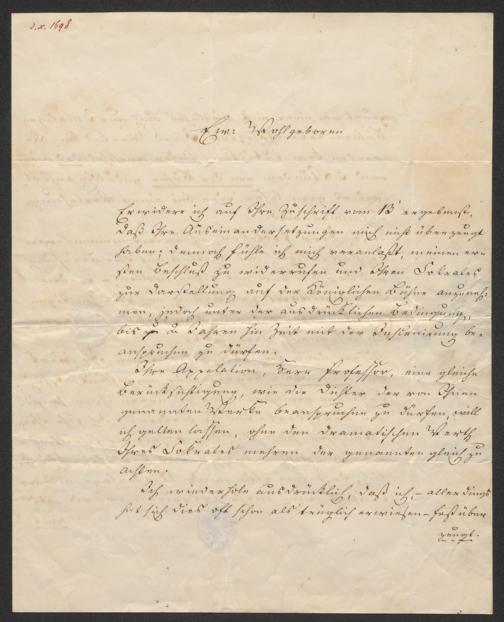 2. x. 1698
Ew: Wohlgeboren
Erwidere ich auf Ihre Zuschrift vom 13' ergebenst,
daß Ihre Auseinandersetzungen mich nicht überzeugt
haben; dennoch fühle ich mich veranlaßt, meinen er-
sten Beschluß zu widerrufen und Ihren Sokrates
zur Darstellung auf der Königlichen Bühne anzuneh-
men, jedoch unter der ausdrücklichen Bedingung,
bis zu 2 Jahren hin Zeit mit der Inscenirung be-
anspruchen zu dürfen.
Ihre Appelation, Herr Professor, eine gleiche
Berücksichtigung, wie die Dichter der von Ihnen
genannten Werke beanspruchen zu dürfen, will
ich gelten lassen, ohne den dramatischen Werth
Ihres Sokrates mehren der genannten gleich zu
achten.
Ich wiederhole ausdrücklich, daß ich, – allerdings
hat sich dies oft schon als trüglich erwiesen – fast über
zeugt